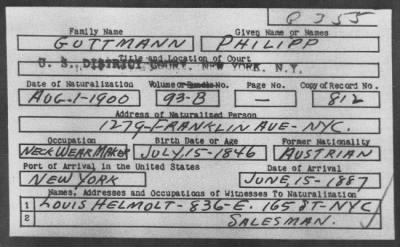 G 355
Family Name Given Name or Names
GUTTMANN PHILIPP
Title and Location of Court
U. S. DISTRICT COURT, NEW YORK, N.Y.
Date of Naturalization Volume or Bundle No. Page No. Copy of Record No.
AUG-1-1900 93-B — 812
Address of Naturalized Person
1279-FRANKLIN AVE-NYC.
Occupation Birth Date or Age Former Nationality
NECKWEAR MAKER JULY, 15-1846 AUSTRIAN
Port of Arrival in the United States Date of Arrival
NEW YORK JUNE, 15-1887
Names, Addresses and Occupations of Witnesses To Naturalization
1 LOUIS HELMOLT-836-E. 165 ST-NYC
2 SALESMAN.